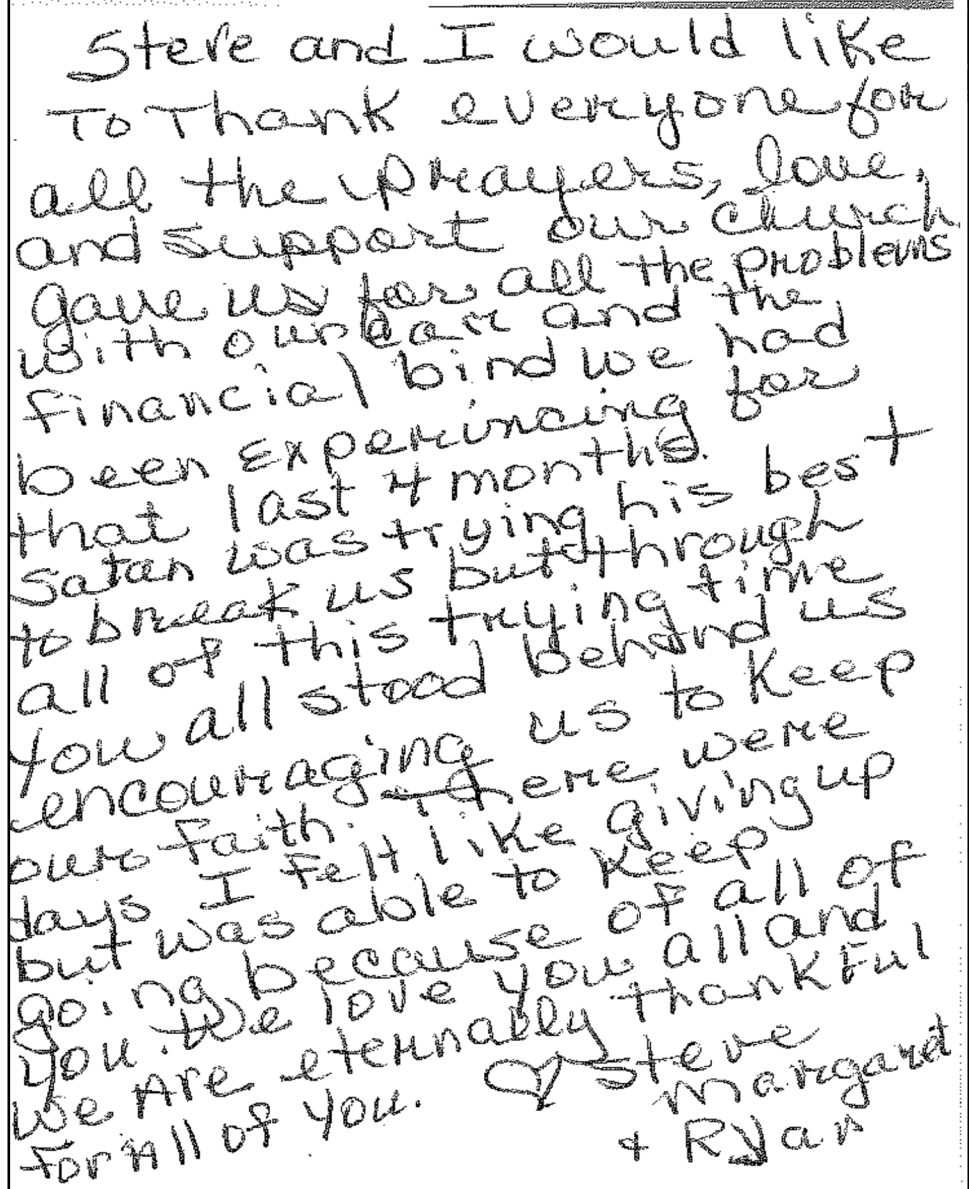 Steve and I would like
To Thank everyone for
all the prayers, love,
and support our church
gave us for all the problems
with our car and the
financial bind we had
been experincing for
that last 4 months.
Satan was trying his best
to break us but through
all of this trying time
you all stood behind us
encouraging us to keep
our faith. There were
days I felt like giving up
but was able to keep
going because of all of
you. We love you all and
we Are eternally thankful
for All of you. ♡ Steve
Margaret
+ Ryan